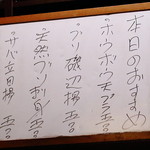 本日のおすすめ
ホウボウ天プラ 五〇〇
ブリ磯辺揚 五〇〇
天然ブリ刺身 五〇〇
サバ立田揚 五〇〇